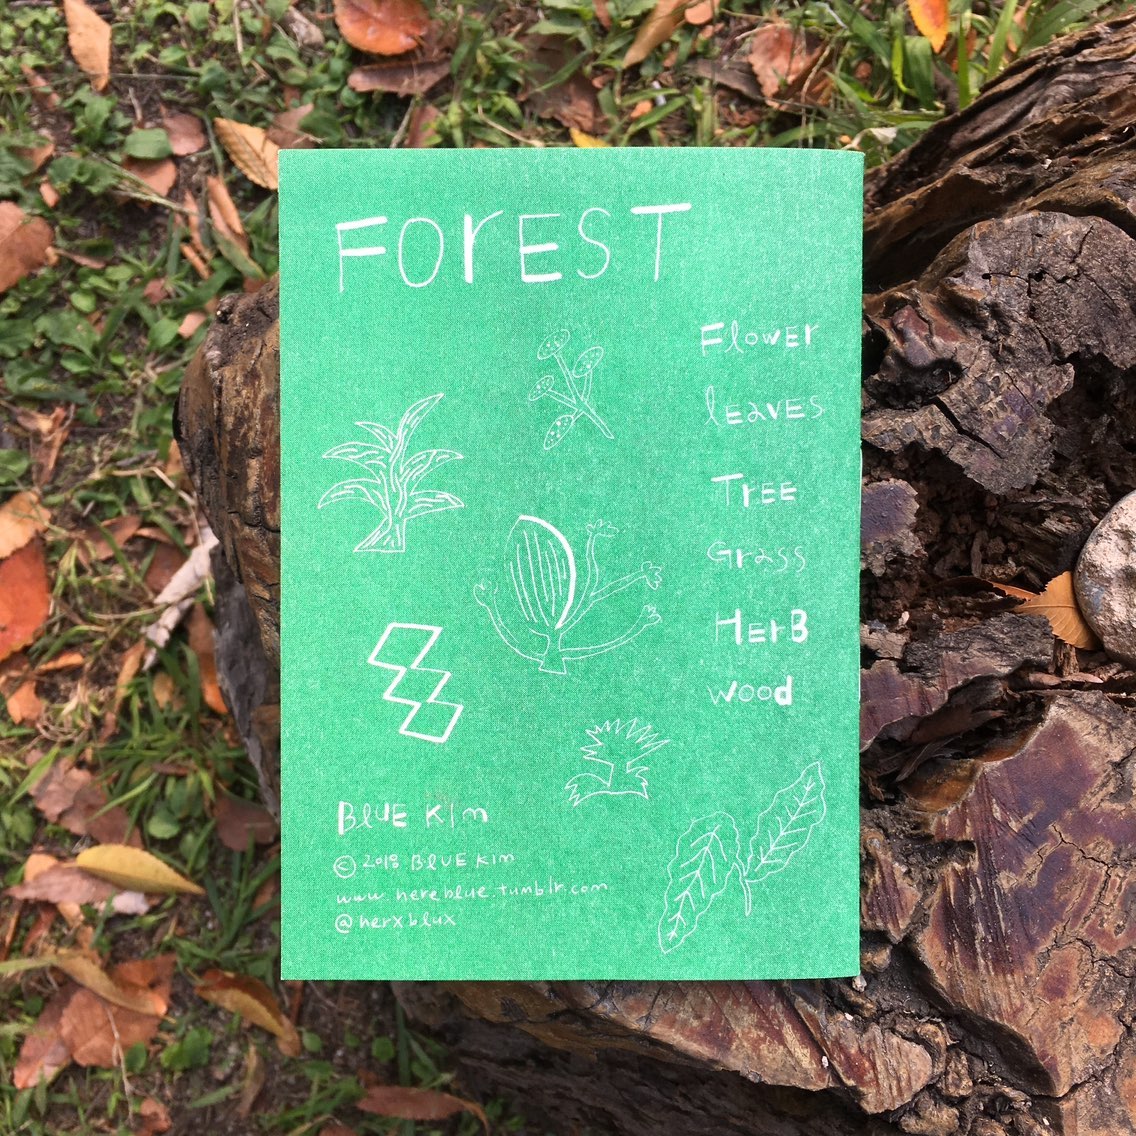 FOrEST
Flower
leaves
Tree
Grass
HerB
wood
BlUE KIm
© 2018 BlUE KIm
www.hereblue.tumblr.com
@herxblux